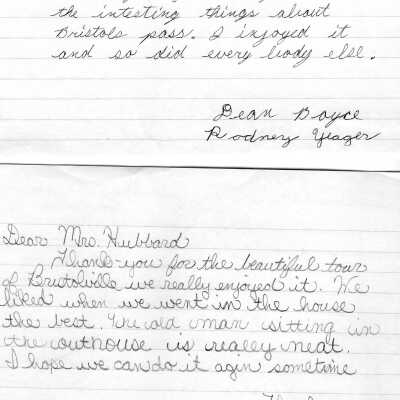 the intesting things about
Bristols pass. I injoyed it
and so did every body else.
Dean Boyce
Rodney Yeager
Dear Mrs. Hubbard
Thank-you for the beautiful tour
of Bristolville we really enjoyed it. We
liked when we went in the house
the best. The old man sitting in
the outhouse is really neat.
I hope we can do it agin sometime